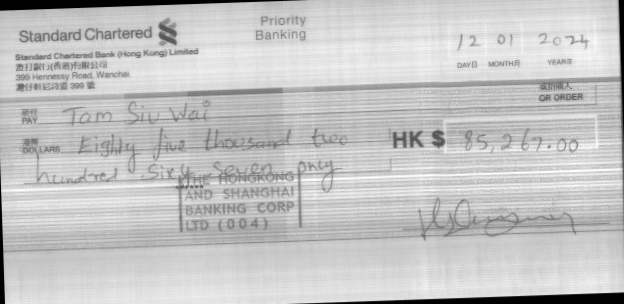 Standard Chartered
Priority
Banking
Standard Chartered Bank (Hong Kong) Limited
渣打銀行(香港)有限公司
399 Hennessy Road, Wanchai
灣仔軒尼詩道 399 號
12 01 2024
DAY日 MONTH月 YEAR年
祈付
PAY Tam Siu Wai
或持票人
OR ORDER
港幣
DOLLARS Eighty five thousand two
hundred sixty seven only
HK $ 85,267.00
THE HONGKONG
AND SHANGHAI
BANKING CORP
LTD (004)